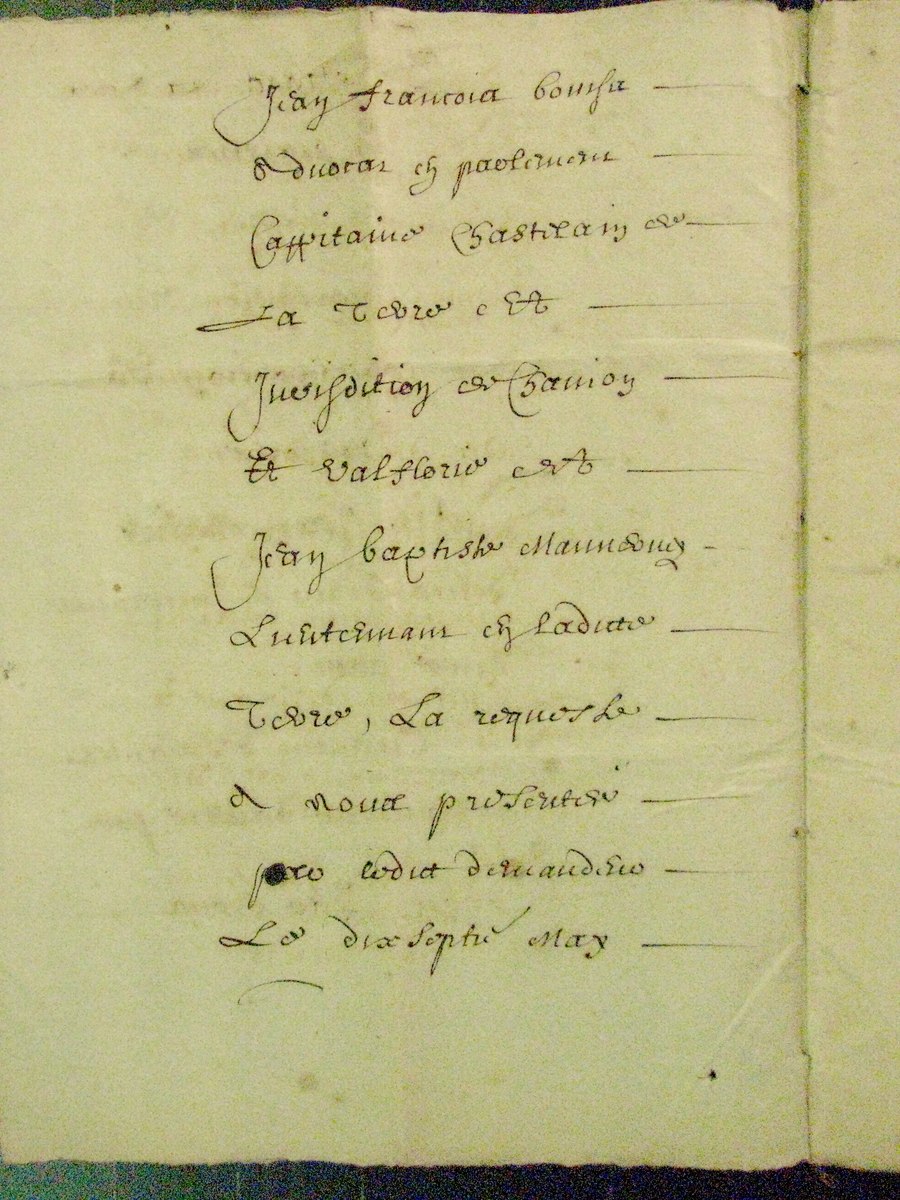 Jean francois
advocat en parlement
Cappitaine Chastelain de
La Terre et
Jurisdition de
Et valflorie et
Jean baptiste
Lieutennant en laditte
Terre, La requeste
a nous presentee
par ledict demandeur
Le dix septie May